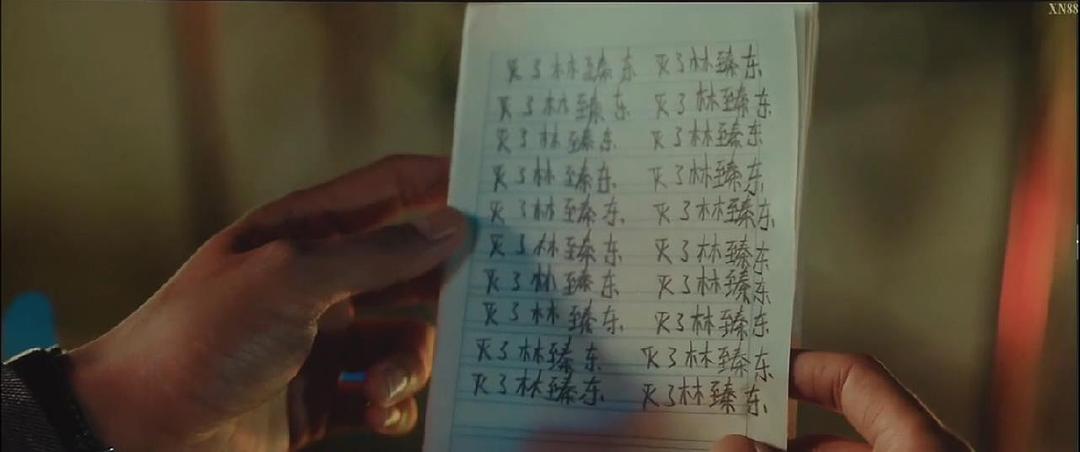 XN88
灭了林臻东 灭了林臻东
灭了林臻东 灭了林臻东
灭了林臻东 灭了林臻东
灭了林臻东 灭了林臻东
灭了林臻东 灭了林臻东
灭了林臻东 灭了林臻东
灭了林臻东 灭了林臻东
灭了林臻东 灭了林臻东
灭了林臻东 灭了林臻东
灭了林臻东 灭了林臻东